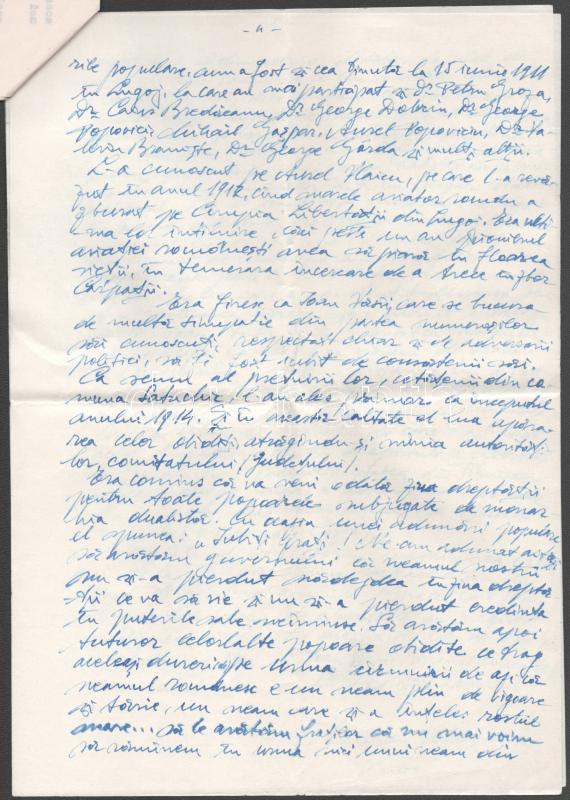 - 4 -
rile populare, cum a fost și cea ținută la 15 iunie 1911
în Lugoj, la care au mai participat și Dr. Petru Groza,
Dr. Caius Brediceanu, Dr. George Dobrin, Dr. George
Popovici, Mihail Gașpar, Aurel Popoviciu, Dr. Va-
leriu Braniște, Dr. George Gârda și mulți alții.
L-a cunoscut pe Aurel Vlaicu, pe care l-a revă-
zut în anul 1912, când marele aviator român a
zburat pe Câmpia Libertății din Lugoj. Era ulti-
ma lor întîlnire, căci peste un an pionierul
aviației românești avea să piară în floarea
vieții, în temerara încercare de a trece în zbor
Carpații.
Era firesc ca Ioan, care se bucura
de multă simpatie din partea numeroșilor
săi cunoscuți, respectat chiar și de adversarii
politici, să fi fost iubit de consătenii săi.
Ca semn al prețuirii lor, cetățenii din co-
muna l-au ales primar la începutul
anului 1914. Și în această calitate el lua apăra-
rea celor obidiți, atrăgându-și mânia autorități-
lor, comitatului (județului).
Era convins că va veni odată ziua dreptății
pentru toate popoarele subjugate de monar-
hia dualistă. Cu ocazia unei adunări populare
el spunea: „Iubiți frați! Ne-am adunat aici
să arătăm guvernului că neamul nostru
nu și-a pierdut nădejdea în ziua dreptă-
ții ce va să vie și nu și-a pierdut credința
în puterile sale. Să arătăm apoi
tuturor celorlalte popoare obidite ce trag
aceleași dureri pe urma cârmuirii de azi că
neamul românesc e un neam plin de vigoare
și tărie, un neam care și-a înțeles rostul
mare... să le arătăm fraților că nu mai voim
să rămânem în urma nici unui neam din